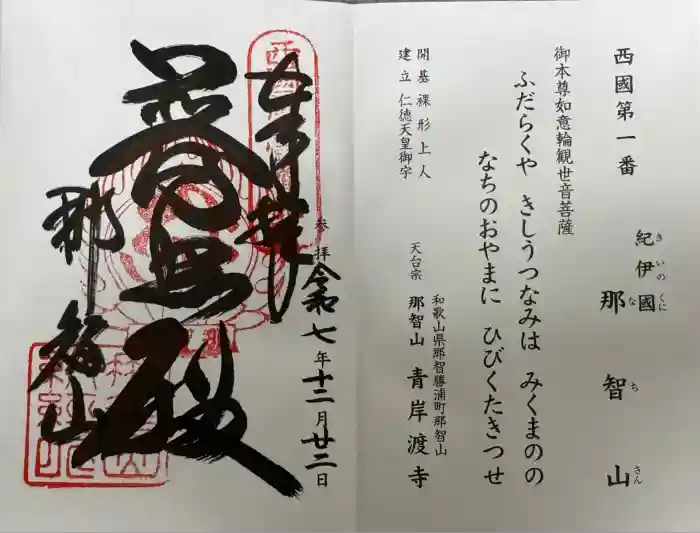 西國第一番
紀伊國
きいのくに
那智山
なちさん
御本尊如意輪観世音菩薩
ふだらくや きしうつなみは みくまのの
なちのおやまに ひびくたきつせ
開基 裸形上人
建立 仁徳天皇御宇
和歌山県那智勝浦町那智山
天台宗 那智山 青岸渡寺
奉拝
参拝
令和七年十二月廿二日
普照殿
那智山